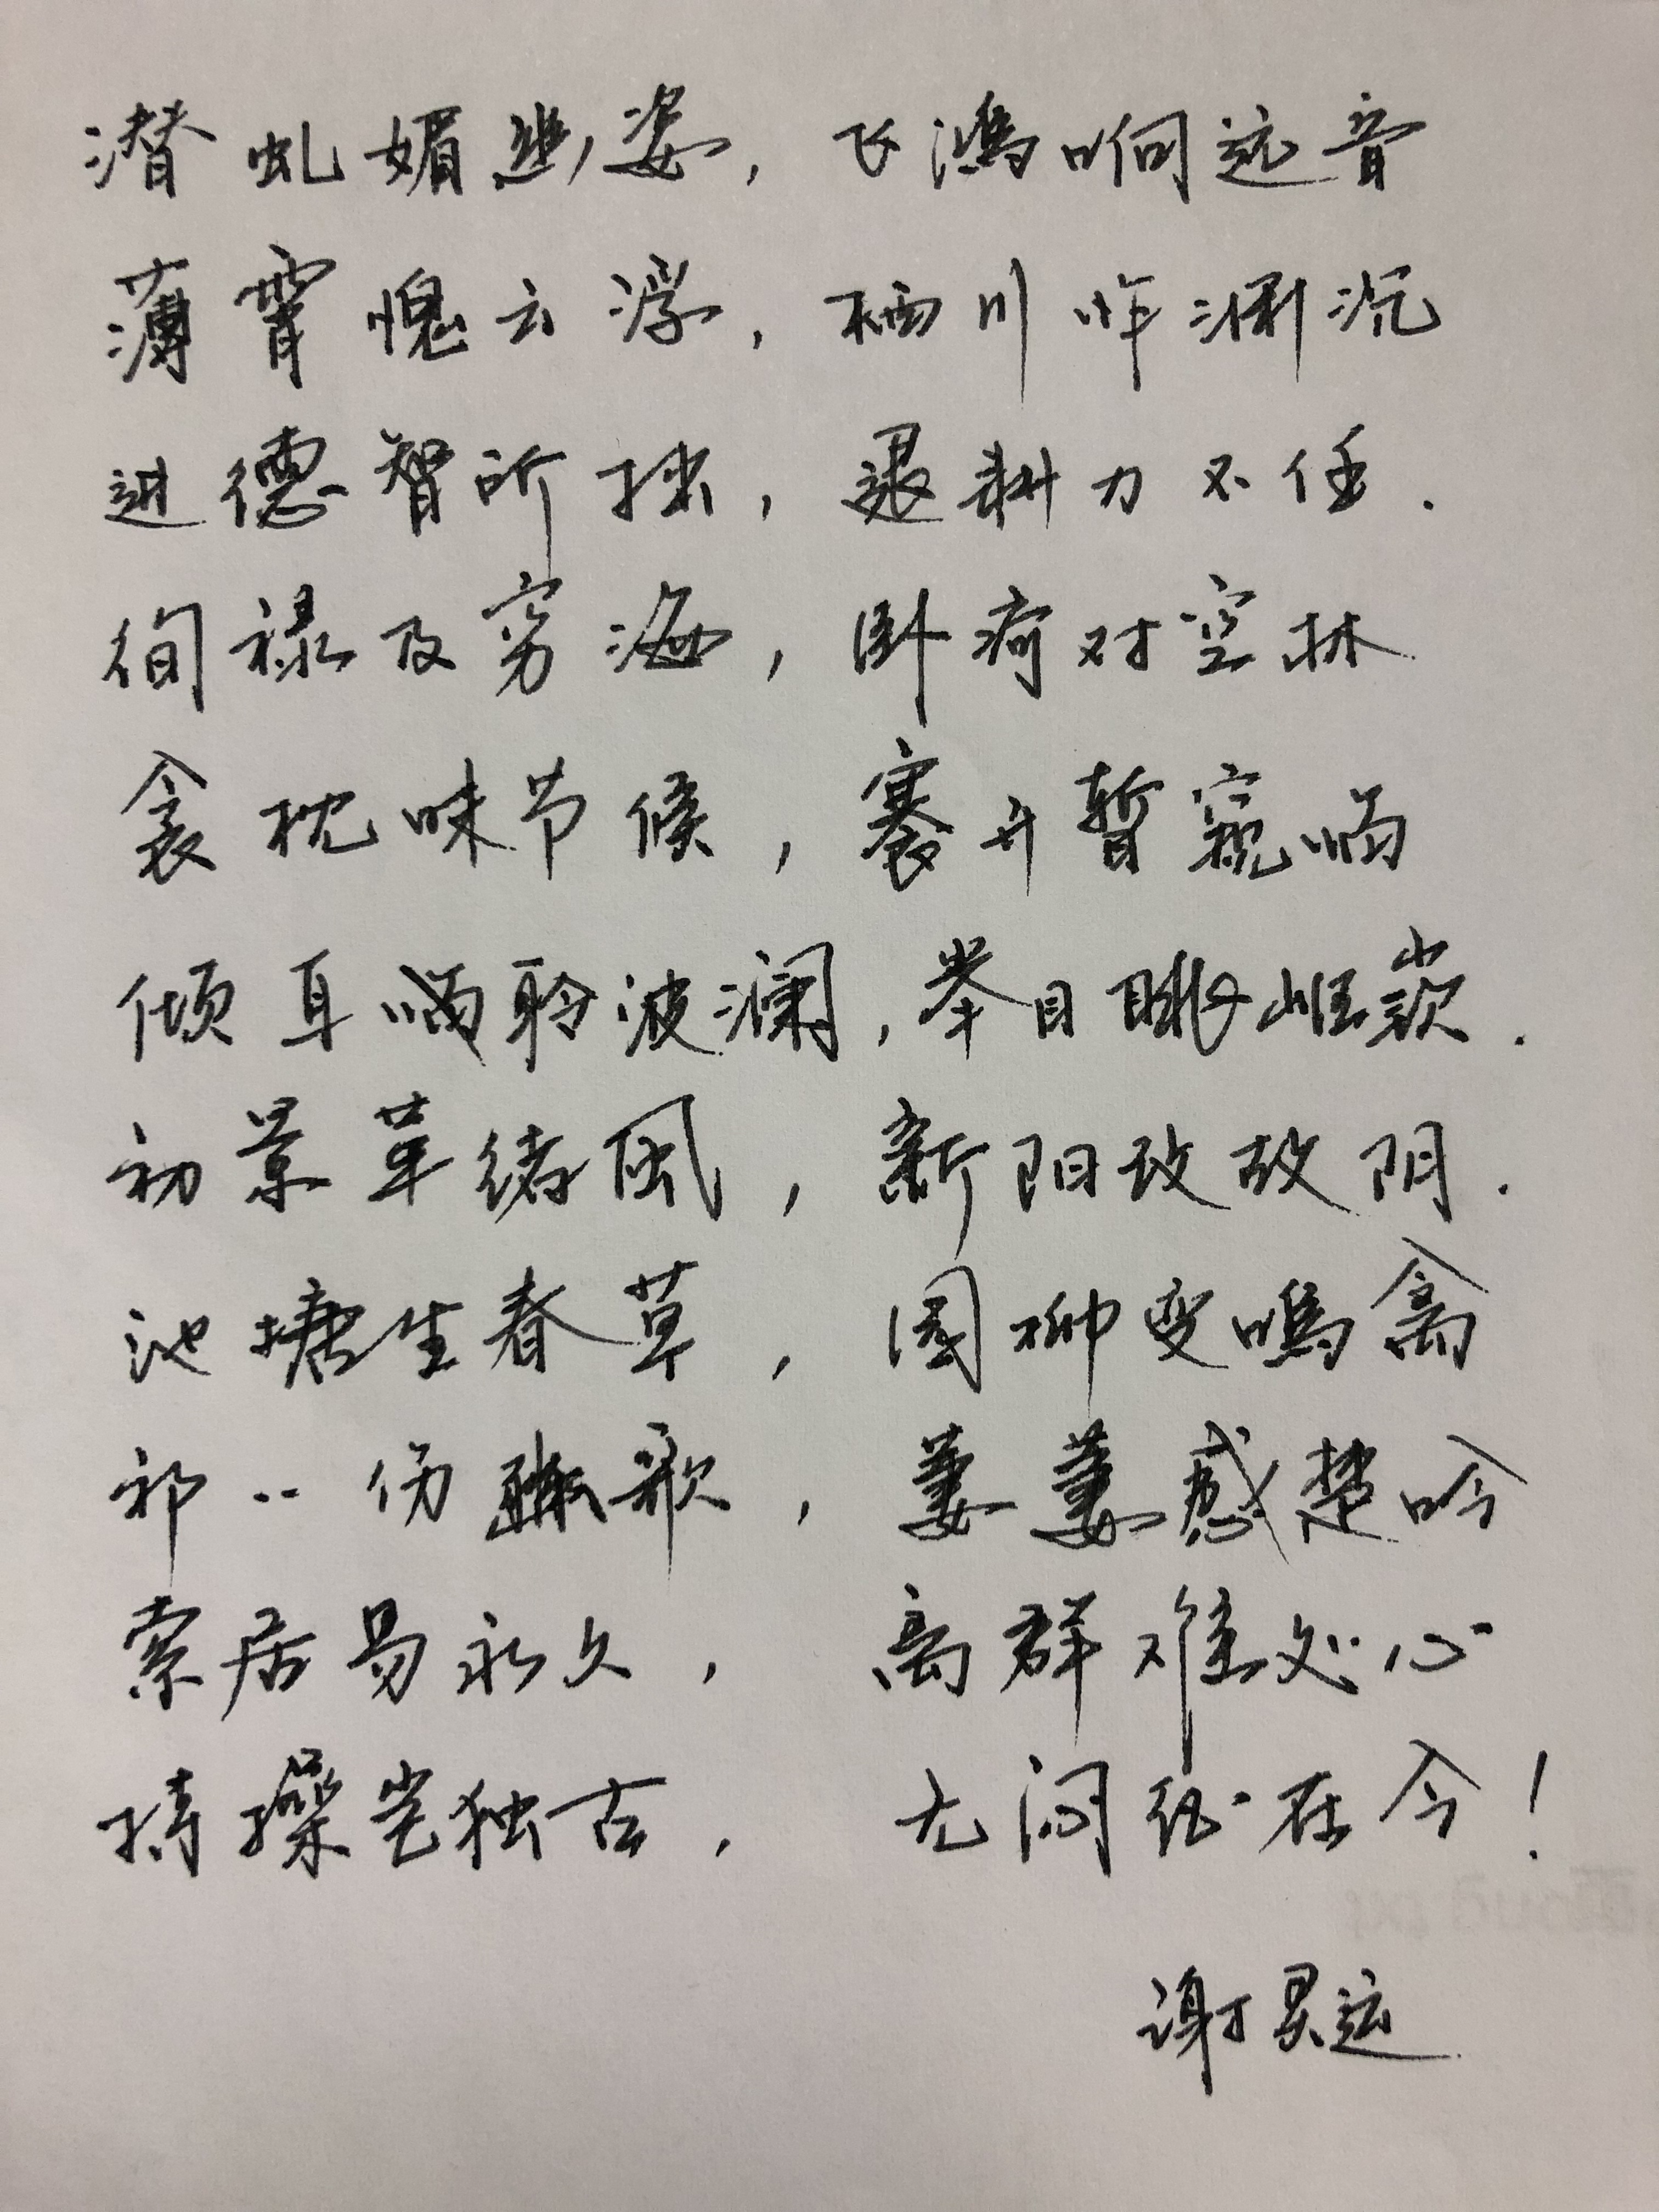 潜虬媚幽姿，飞鸿响远音
薄霄愧云浮，栖川怍渊沉
进德智所拙，退耕力不任.
徇禄及穷海，卧疴对空林
衾枕昧节候，褰开暂窥临
倾耳聆波澜，举目眺岖嵚.
初景革绪风，新阳改故阴.
池塘生春草，园柳变鸣禽
祁‥伤歌，萋萋感楚吟
索居易永久，离群难处心
持操岂独古，无闷征在今！
谢灵运